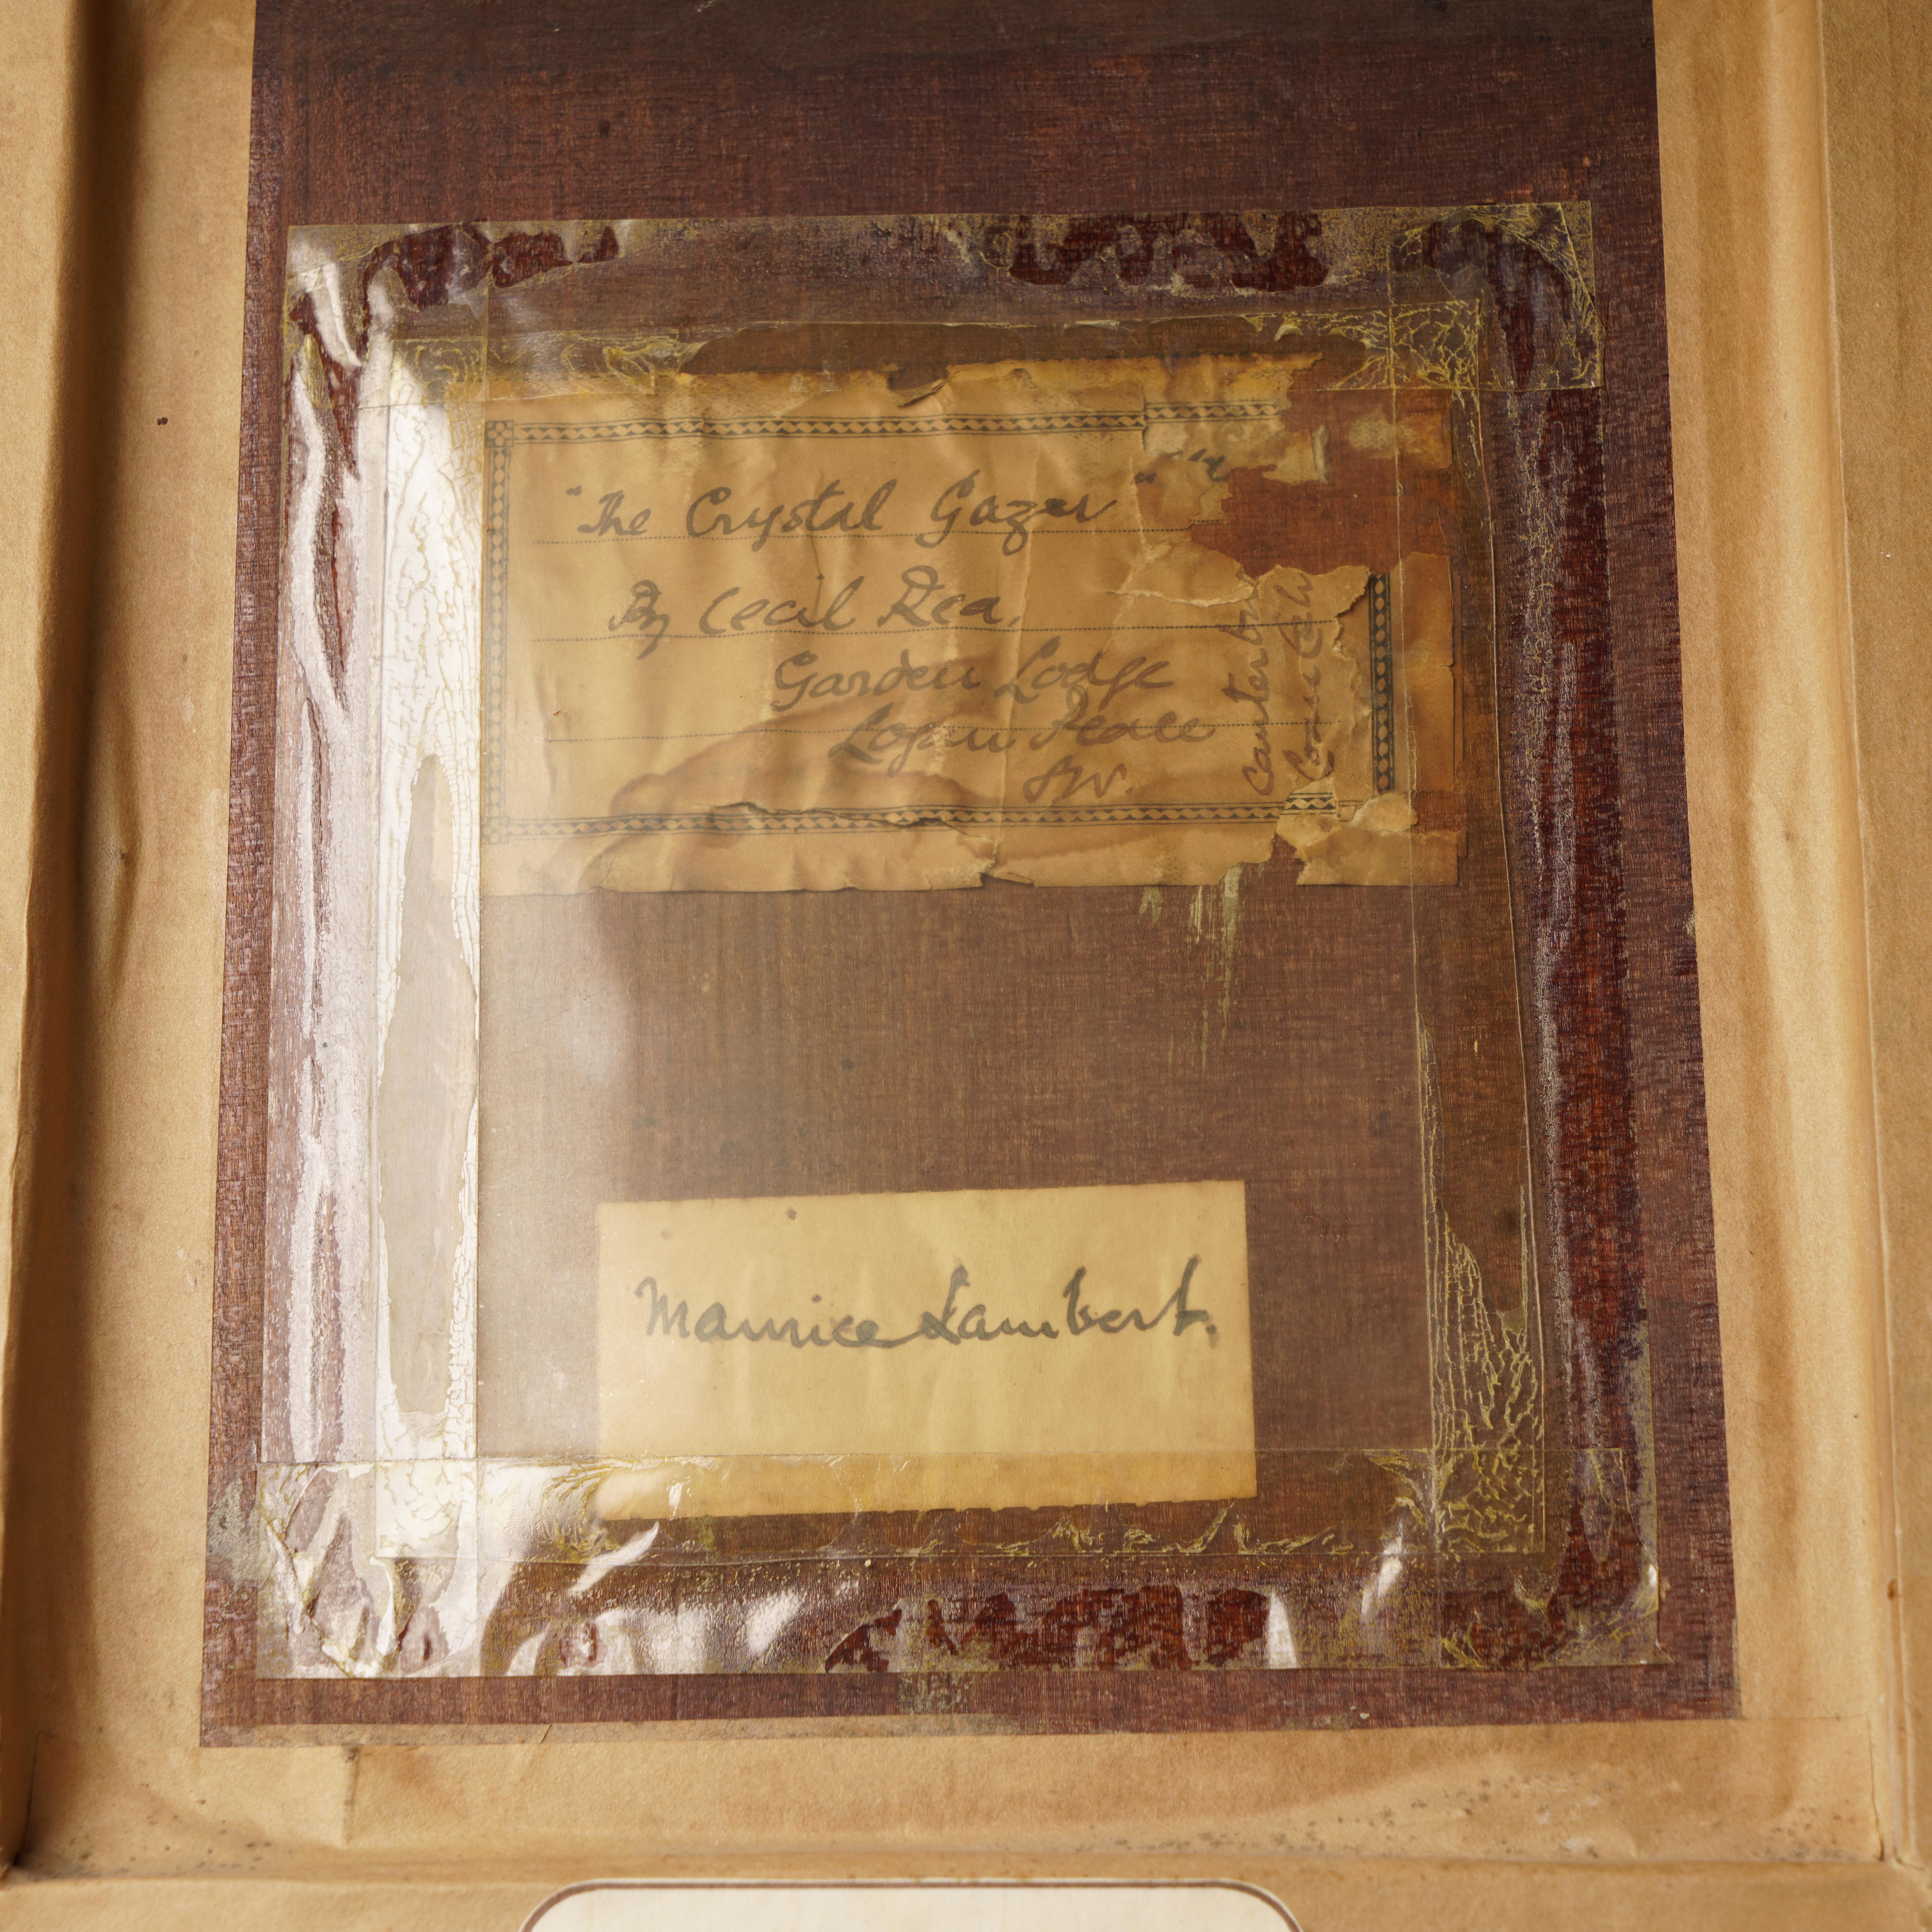 "The Crystal Gazer"
By Cecil Rea.
Garden Lodge
Logan Place
SW.
Canterbury
Maurice Lambert.